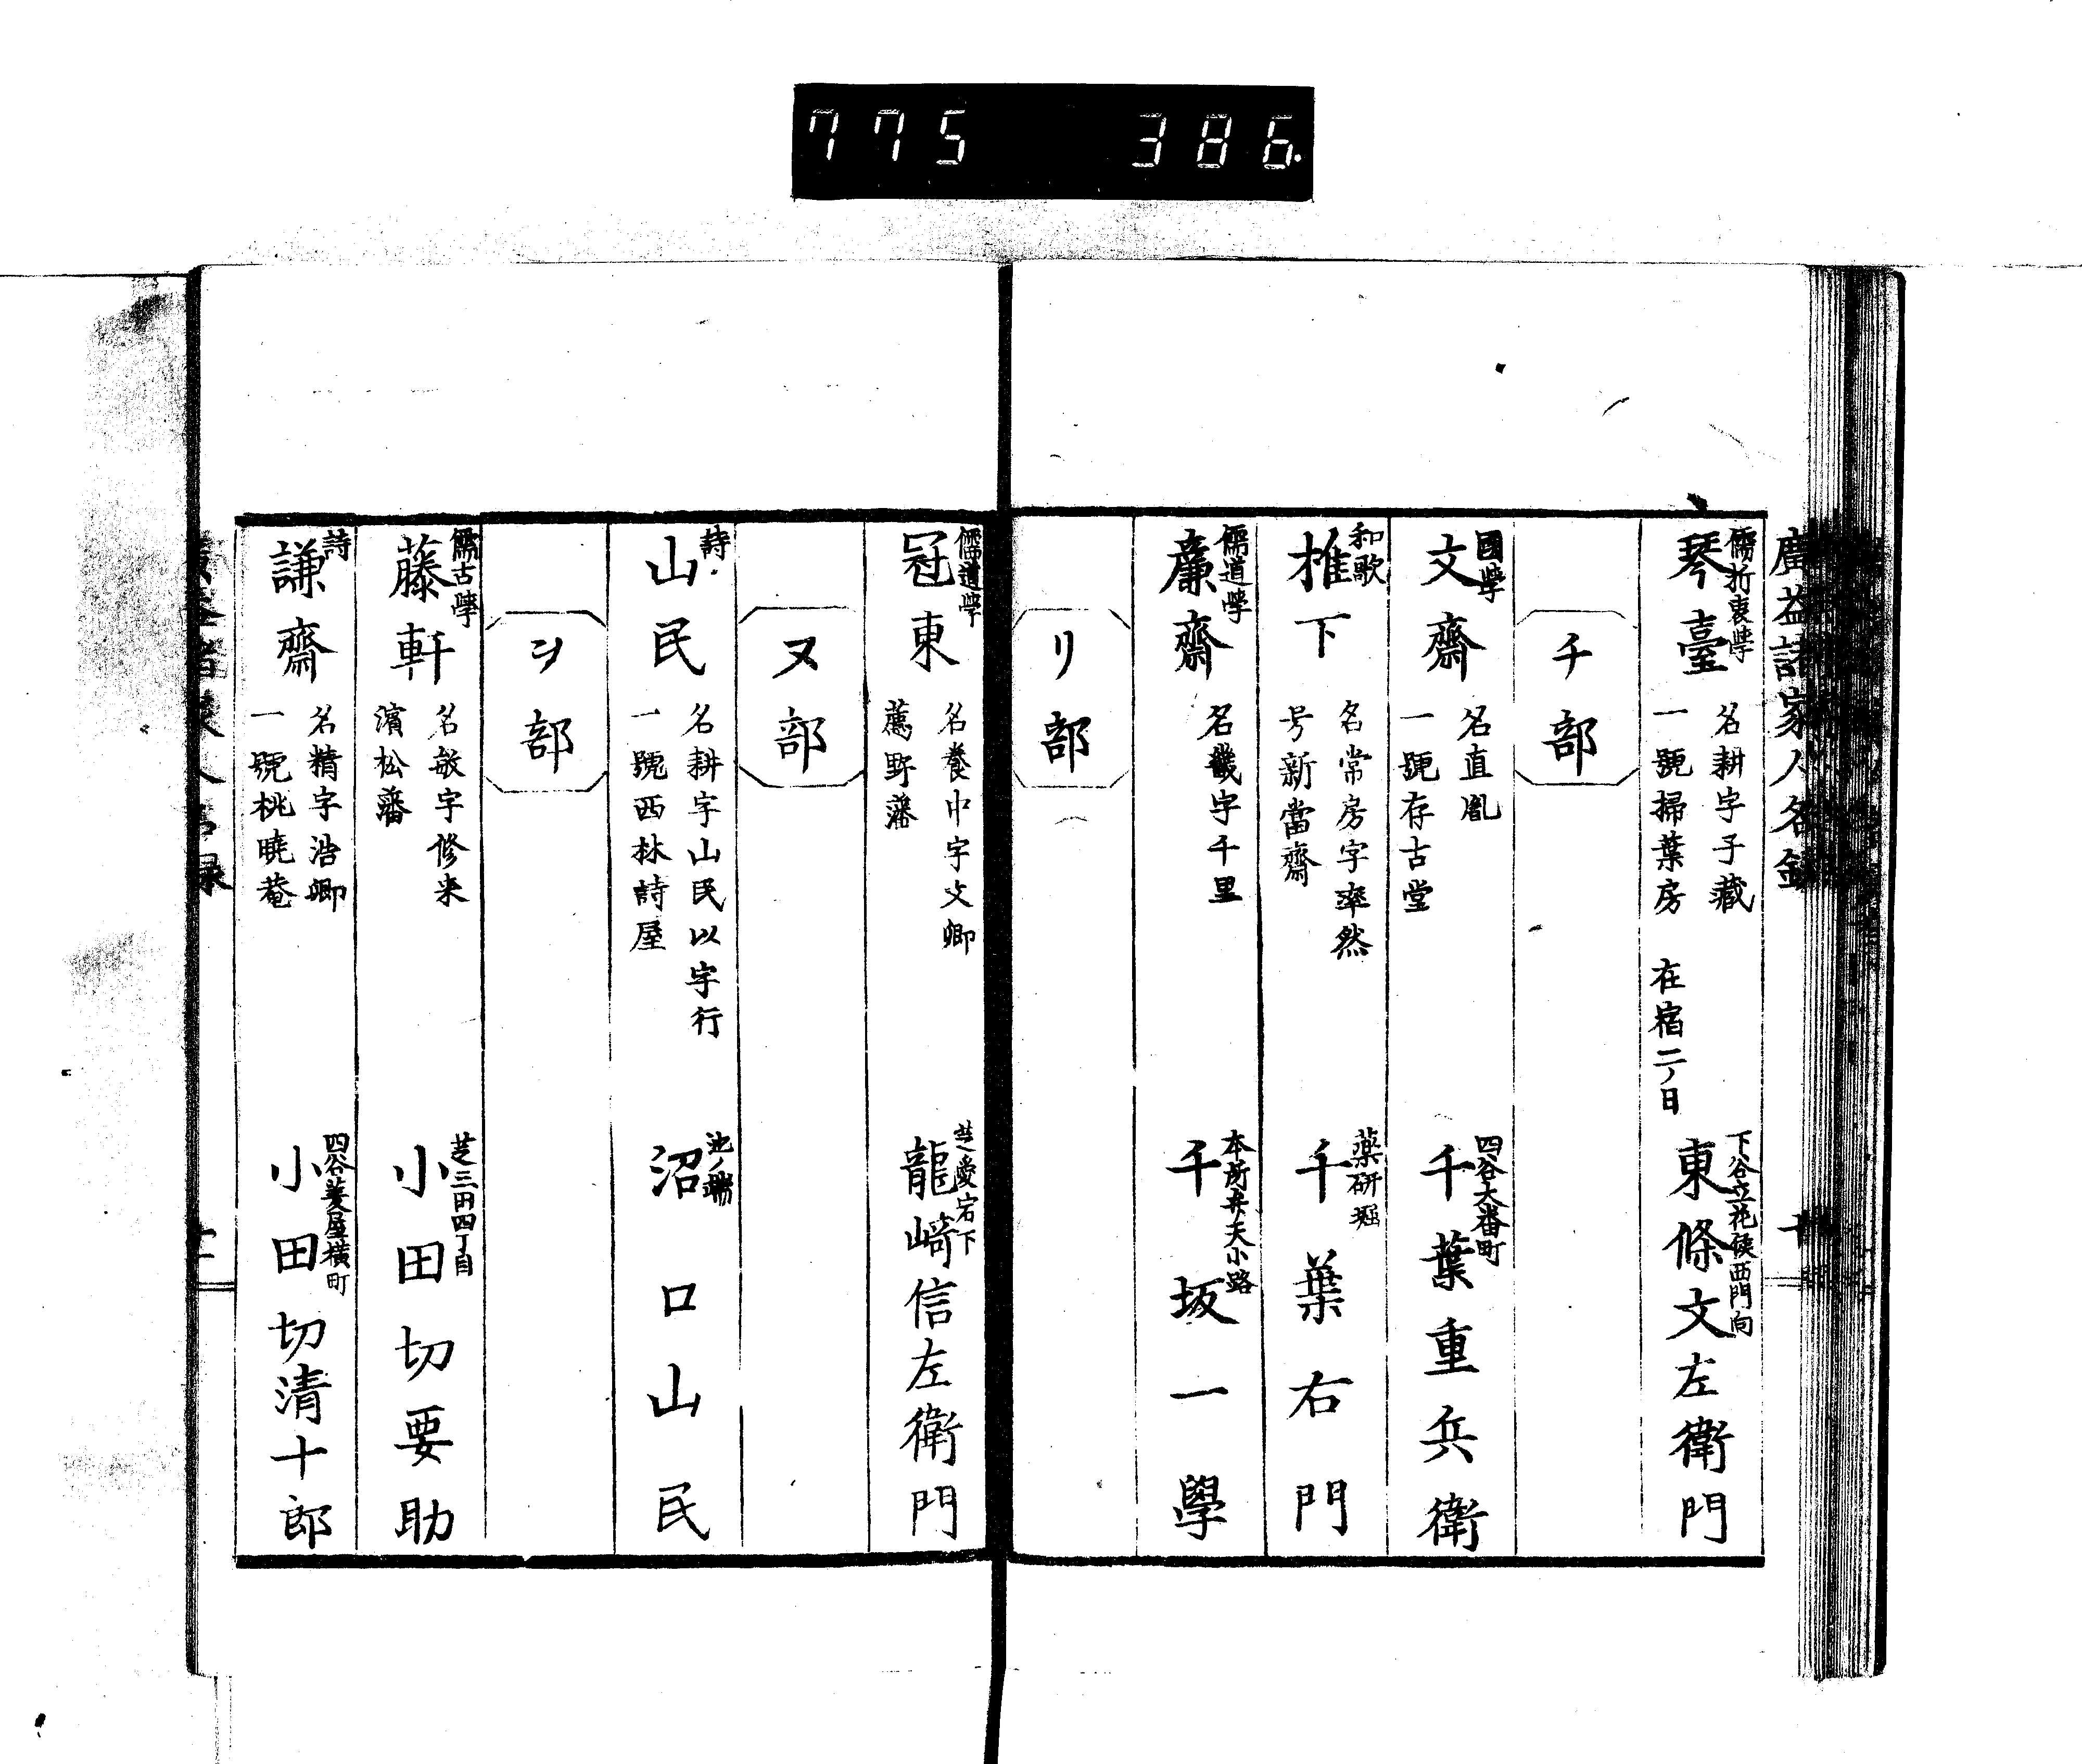 775 386
廣益諸家人名録
十
儒折衷學
琴臺
名耕字子藏
一號掃葉房 在宿二ノ日
下谷立花侯西門向
東條文左衛門
チ部
國學
文齋
名直胤
一號存古堂
四谷大番町
千葉重兵衛
和歌
椎下
名常房字率然
号新當齋
薬研堀
千葉右門
儒道學
廉齋
名畿字千里
本所弁天小路
千坂一學
リ部
儒道學
冠東
名養中字文卿
薦野藩
芝愛宕下
龍崎信左衛門
ヌ部
詩
山民
名耕字山民以字行
一號西林詩屋
池ノ端
沼口山民
ヲ部
儒古學
藤軒
名敏字修来
濱松藩
芝三田四丁目
小田切要助
詩
謙齋
名精字浩卿
一號桃曉菴
四谷菱屋横町
小田切清十郎